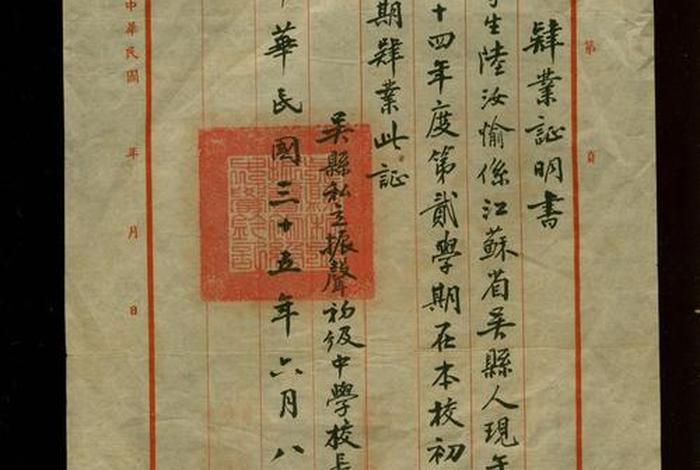 第　頁
肄業証明書
生陸汝愉係江蘇省吳縣人現年
十四年度第貳學期在本校初
期肄業此証
吳縣私立振聲初級中學校長
華民國三十五年六月八
中華民國　年　月　日